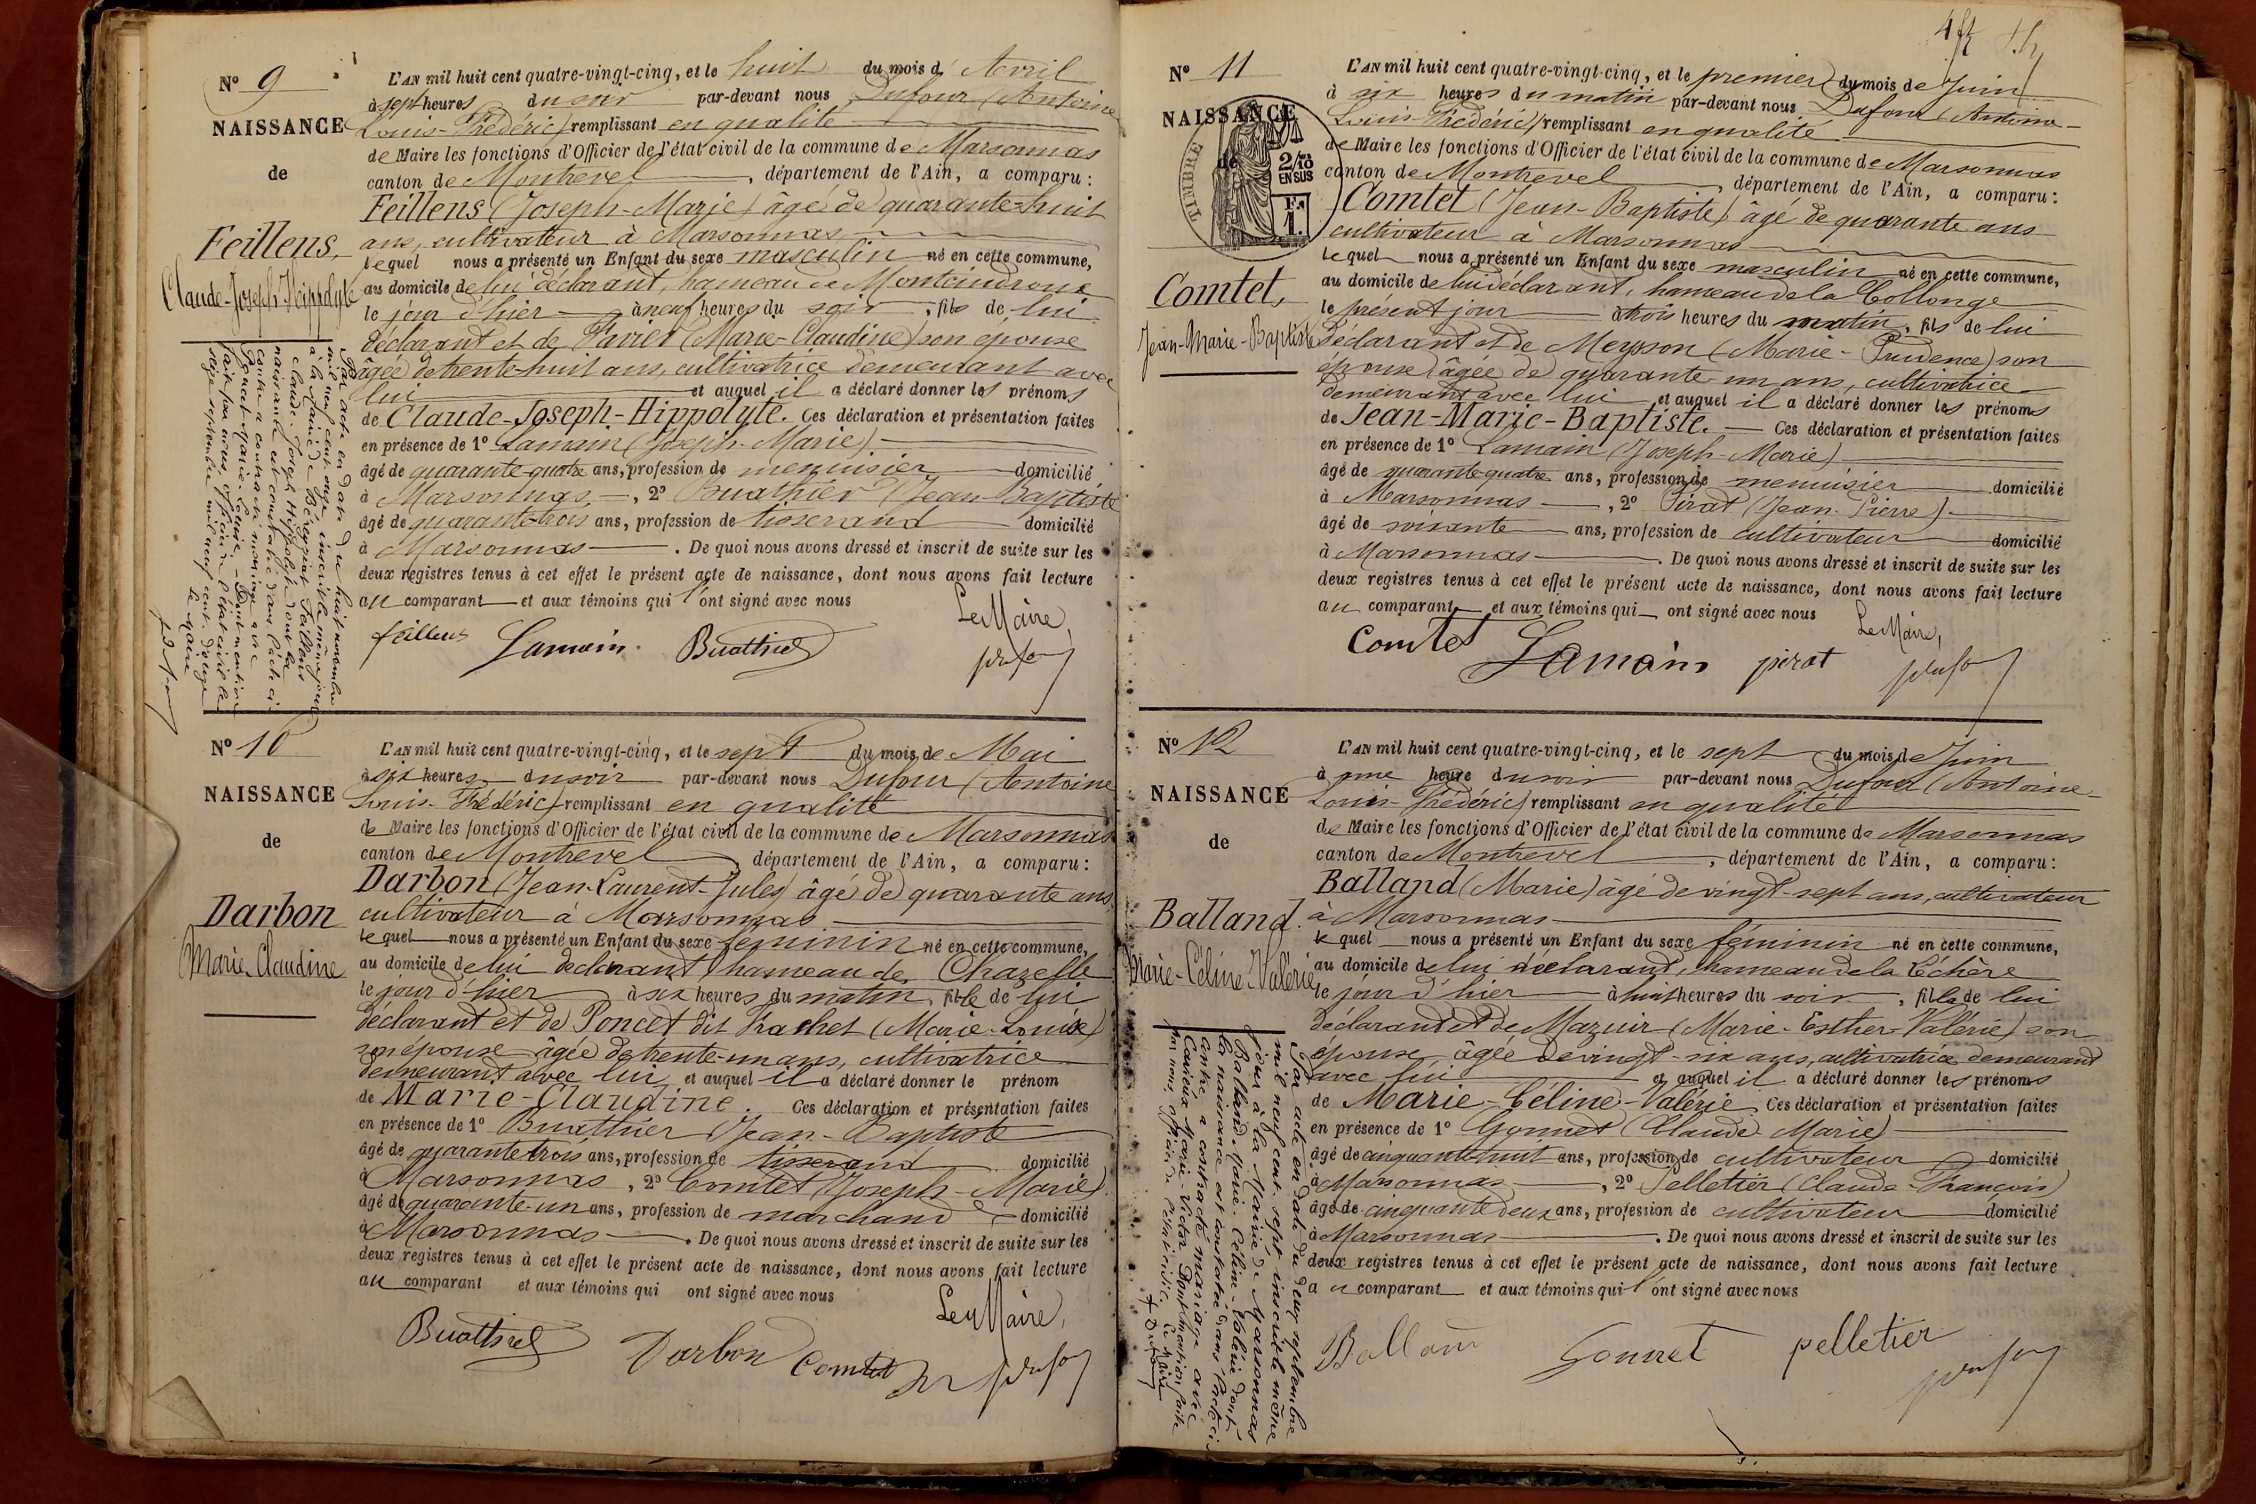 N° 9
NAISSANCE
de
Feillens,
Claude-Joseph-Hippolyte
L'AN mil huit cent quatre-vingt-cinq, et le huit du mois d' Avril
à sept heures du soir par-devant nous Dufour (Antoine
Louis-Frédéric) remplissant en qualité
de Maire les fonctions d'Officier de l'état civil de la commune de Marsonnas
canton de Montrevel, département de l'Ain, a comparu :
Feillens (Joseph-Marie) âgé de quarante-huit
ans, cultivateur à Marsonnas
lequel nous a présenté un Enfant du sexe masculin né en cette commune,
au domicile de lui déclarant, hameau de
le jour d'hier à neuf heures du soir, fils de lui
déclarant et de Favier (Marie-Claudine) son épouse
âgée de trente-huit ans, cultivatrice demeurant avec
lui et auquel il a déclaré donner les prénoms
de Claude-Joseph-Hippolyte. Ces déclaration et présentation faites
en présence de 1° Lamain (Joseph-Marie)
âgé de quarante-quatre ans, profession de menuisier domicilié
à Marsonnas, 2° Buathier (Jean-Baptiste
âgé de quarante-trois ans, profession de tisserand domicilié
à Marsonnas. De quoi nous avons dressé et inscrit de suite sur les
deux registres tenus à cet effet le présent acte de naissance, dont nous avons fait lecture
au comparant et aux témoins qui l'ont signé avec nous
Le Maire,
feillens Lamain. Buathier
Par acte en date du huit novembre
mil neuf cent onze inscrit le même jour
à la Mairie de Béréyziat Feillens
Claude-Joseph Hippolyte dont la
naissance est constatée dans l'acte ci
contre a contracté mariage avec
Marie-Louise, Dont mention
faite par nous, officier de l'état civil le
seize septembre mil neuf cent douze
Le Maire
N° 10
NAISSANCE
de
Darbon
Marie-Claudine
L'AN mil huit cent quatre-vingt-cinq, et le sept du mois de Mai
à six heures du soir par-devant nous Dufour (Antoine
Louis-Frédéric) remplissant en qualité
de Maire les fonctions d'Officier de l'état civil de la commune de Marsonnas
canton de Montrevel, département de l'Ain, a comparu :
Darbon (Jean-Laurent-Jules) âgé de quarante ans,
cultivateur à Marsonnas
lequel nous a présenté un Enfant du sexe féminin né en cette commune,
au domicile de lui déclarant hameau de Chazelle
le jour d'hier à six heures du matin, fille de lui
déclarant et de Poncet dit Trachet (Marie-Louise)
son épouse âgée de trente-un ans, cultivatrice
demeurant avec lui et auquel il a déclaré donner le prénom
de Marie-Claudine. Ces déclaration et présentation faites
en présence de 1° Buathier Jean-Baptiste
âgé de quarante-trois ans, profession de tisserand domicilié
à Marsonnas, 2° Comtet (Joseph-Marie)
âgé de quarante-un ans, profession de marchand domicilié
à Marsonnas. De quoi nous avons dressé et inscrit de suite sur les
deux registres tenus à cet effet le présent acte de naissance, dont nous avons fait lecture
au comparant et aux témoins qui ont signé avec nous
Le Maire,
Buathier Darbon Comtet
N° 11
NAISSANCE
de
TIMBRE
2/10 EN SUS
1.
Comtet,
Jean-Marie-Baptiste
L'AN mil huit cent quatre-vingt-cinq, et le premier du mois de Juin
à six heures du matin par-devant nous Dufour (Antoine-
Louis-Frédéric) remplissant en qualité
de Maire les fonctions d'Officier de l'état civil de la commune de Marsonnas
canton de Montrevel, département de l'Ain, a comparu :
Comtet (Jean-Baptiste) âgé de quarante ans
cultivateur à Marsonnas
lequel nous a présenté un Enfant du sexe masculin né en cette commune,
au domicile de lui déclarant, hameau de la Collonge
le présent jour à trois heures du matin, fils de lui
déclarant et de Meysson (Marie-Prudence) son
épouse, âgée de quarante-un ans, cultivatrice
demeurant avec lui et auquel il a déclaré donner les prénoms
de Jean-Marie-Baptiste. Ces déclaration et présentation faites
en présence de 1° Lamain (Joseph-Marie)
âgé de quarante-quatre ans, profession de menuisier domicilié
à Marsonnas, 2° Pirat (Jean-Pierre)
âgé de soixante ans, profession de cultivateur domicilié
à Marsonnas. De quoi nous avons dressé et inscrit de suite sur les
deux registres tenus à cet effet le présent acte de naissance, dont nous avons fait lecture
au comparant et aux témoins qui ont signé avec nous
Le Maire,
Comtet Lamain pirat
N° 12
NAISSANCE
de
Balland.
Marie-Céline-Valérie
L'AN mil huit cent quatre-vingt-cinq, et le sept du mois de Juin
à une heure du soir par-devant nous Dufour (Antoine-
Louis-Frédéric) remplissant en qualité
de Maire les fonctions d'Officier de l'état civil de la commune de Marsonnas
canton de Montrevel, département de l'Ain, a comparu :
Balland (Marie) âgé de vingt-sept ans, cultivateur
à Marsonnas
lequel nous a présenté un Enfant du sexe féminin né en cette commune,
au domicile de lui déclarant, hameau de la Léchère
le jour d'hier à huit heures du soir, fille de lui
déclarant et de Mazuir (Marie-Esther-Valérie) son
épouse, âgée de vingt-six ans, cultivatrice demeurant
avec lui et auquel il a déclaré donner les prénoms
de Marie-Céline-Valérie. Ces déclaration et présentation faites
en présence de 1° Gonnet (Claude Marie)
âgé de cinquante-huit ans, profession de cultivateur domicilié
à Marsonnas, 2° Pelletier (Claude-François)
âgé de cinquante-deux ans, profession de cultivateur domicilié
à Marsonnas. De quoi nous avons dressé et inscrit de suite sur les
deux registres tenus à cet effet le présent acte de naissance, dont nous avons fait lecture
au comparant et aux témoins qui l'ont signé avec nous
Balland Gonnet pelletier
Par acte en date du deux septembre
mil neuf cent sept inscrit le même
jour à la Mairie de Marsonnas
Balland Marie-Céline-Valérie dont
la naissance est constatée dans l'acte ci
contre a contracté mariage avec
Marie-Victor Dont mention faite
par nous officier de l'état civil. Le Maire